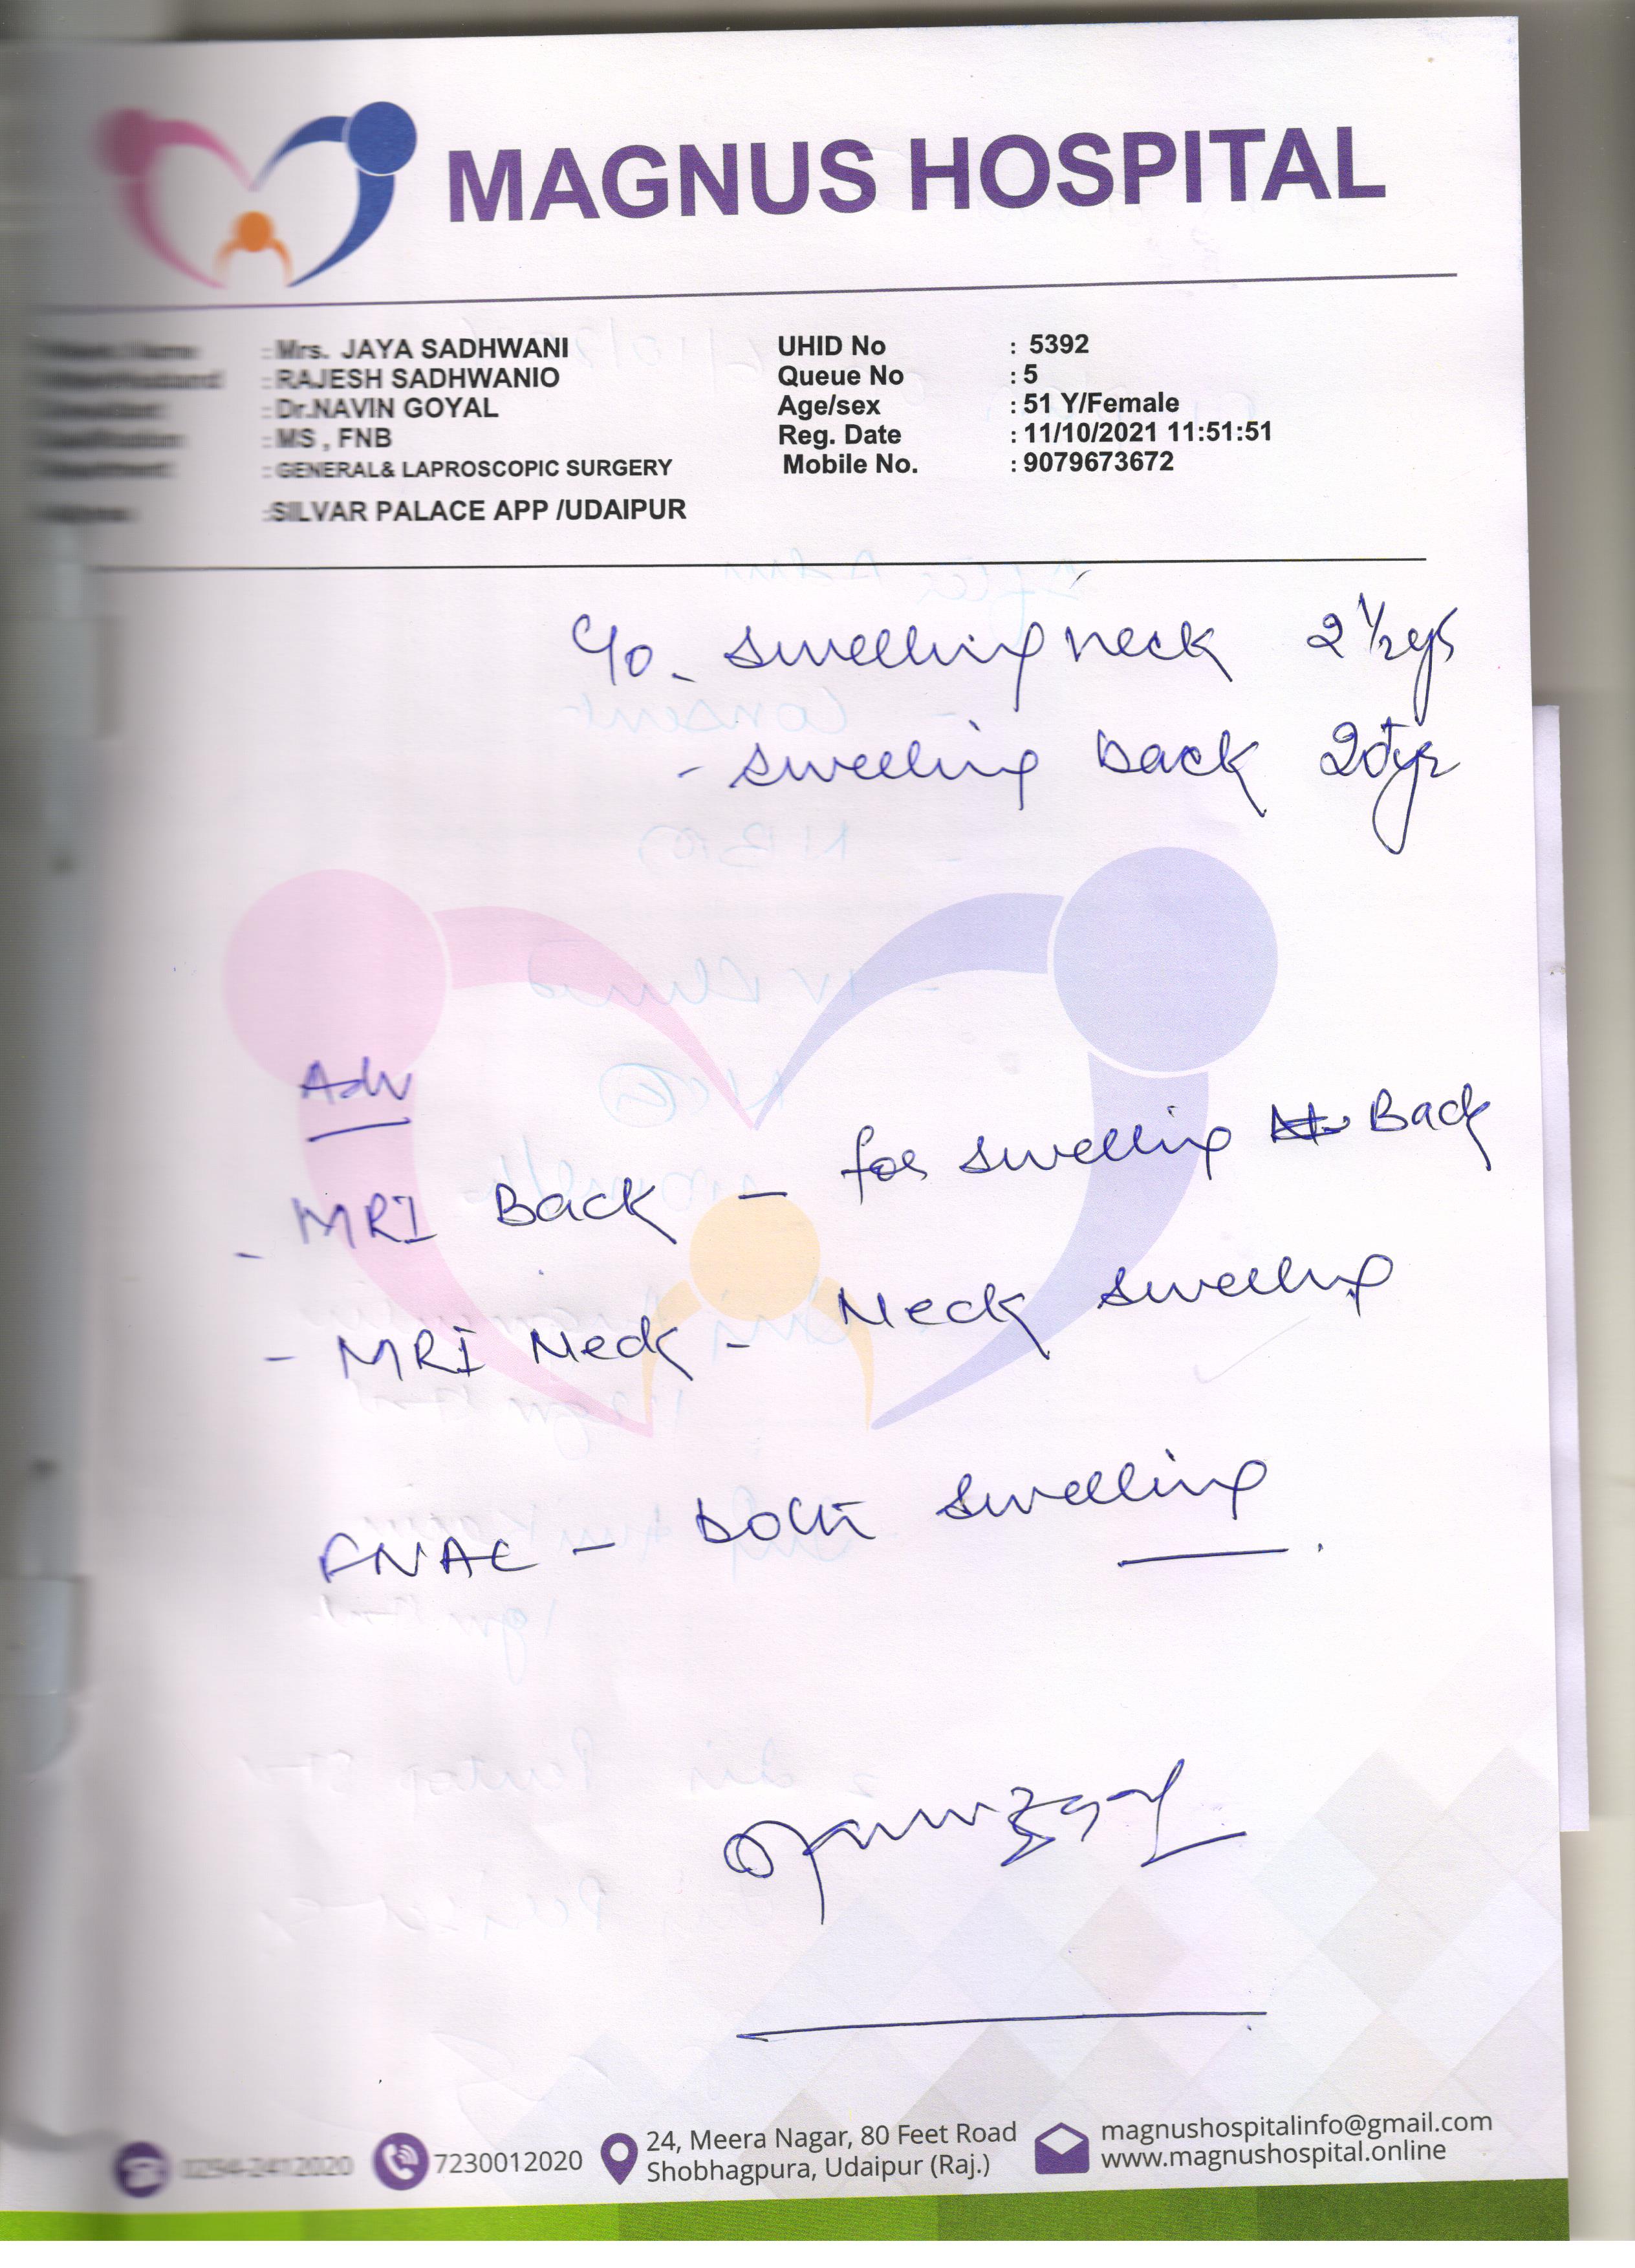 MAGNUS HOSPITAL
: Mrs. JAYA SADHWANI UHID No : 5392
: RAJESH SADHWANIO Queue No : 5
: Dr.NAVIN GOYAL Age/sex : 51 Y/Female
: MS , FNB Reg. Date : 11/10/2021 11:51:51
: GENERAL& LAPROSCOPIC SURGERY Mobile No. : 9079673672
:SILVAR PALACE APP /UDAIPUR
C/o. swelling neck 2 1/2 yrs
- swelling back 20 yr
Adv
- MRI Back - for swelling Back
- MRI Neck - Neck swelling
FNAC - both swelling
0294-2412020 7230012020 24, Meera Nagar, 80 Feet Road magnushospitalinfo@gmail.com
Shobhagpura, Udaipur (Raj.) www.magnushospital.online